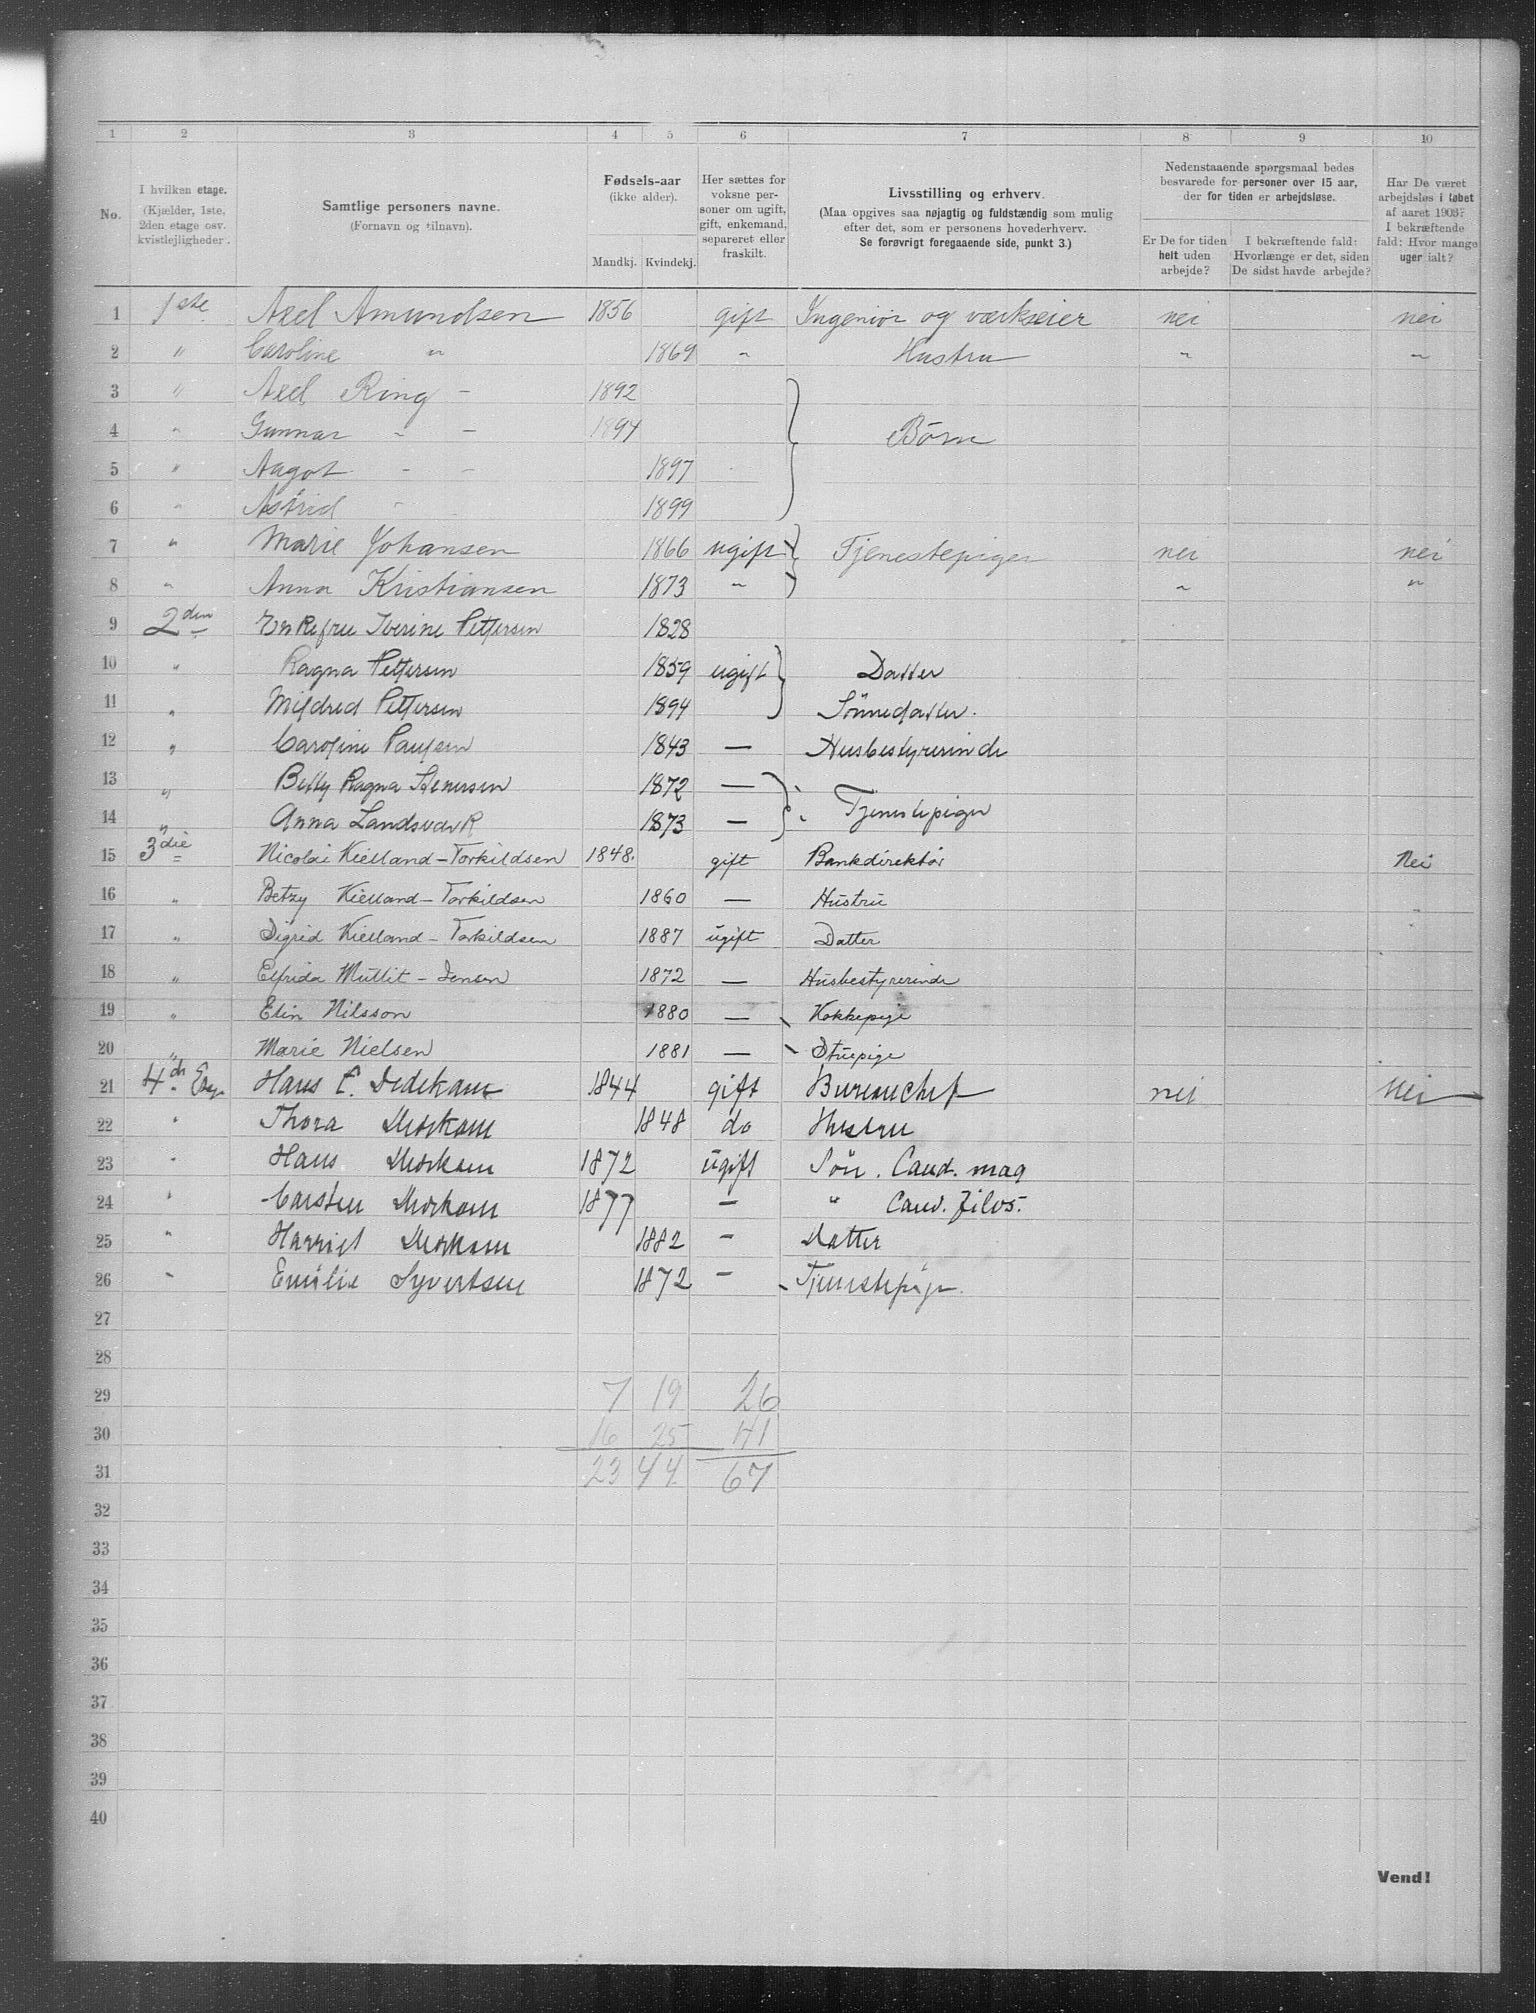 1 2 3 4 5 6 7 8 9 10
No.
I hvilken etage.
(Kjælder, 1ste,
2den etage osv.
kvistlejligheder.
Samtlige personers navne.
(Fornavn og tilnavn).
Fødsels-aar
(ikke alder).
Mandkj. Kvindekj.
Her sættes for
voksne per-
soner om ugift,
gift, enkemand,
separeret eller
fraskilt.
Livsstilling og erhverv.
(Maa opgives saa nøjagtig og fuldstændig som mulig
efter det, som er personens hovederhverv.
Se forøvrigt foregaaende side, punkt 3.)
Nedenstaaende spørgsmaal bedes
besvarede for personer over 15 aar,
der for tiden er arbejdsløse.
Er De for tiden
helt uden
arbejde?
I bekræftende fald:
Hvorlænge er det, siden
De sidst havde arbejde?
Har De været
arbejdsløs i løbet
af aaret 1903?
I bekræftende
fald: Hvor mange
uger ialt?
1 1ste Axel Amundsen 1856 gift Ingeniør og værkseier nei nei
2 " Caroline " 1869 " Hustru " "
3 " Axel Ring - 1892
4 " Gunnar - - 1894 Børn
5 " Aagot - - 1897
6 " Astrid - 1899
7 " Marie Johansen 1866 ugift Tjenestepiger nei nei
8 " Anna Kristiansen 1873 " " "
9 2den Enkefru Iverine Pettersen 1828
10 " Ragna Pettersen 1859 ugift Datter
11 " Mildred Pettersen 1894 Sönnedatter.
12 " Caroline Paulsen 1843 — Husbestyrerinde
13 " Betty Ragna Stenersen 1872 — Tjenestepiger
14 " Anna Landsvark 1873 —
15 3die Nicolai Kielland-Torkildsen 1848. gift Bankdirektör Nei
16 " Betzy Kielland-Torkildsen 1860 — Hustru "
17 " Sigrid Kielland-Torkildsen 1887 ugift Datter
18 " Elfrida Jensen 1872 — Husbestyrerinde
19 " Elin Nilsson 1880 — Kokkepige
20 " Marie Nielsen 1881 — Stuepige
21 4de Etg Hans C. Dedekam 1844 gift Bureauchef nei Nei
22 " Thora Dedekam 1848 do Hustru
23 " Hans Dedekam 1872 ugift Sön. Cand. mag
24 " Carsten Dedekam 1877 — " Cand. filos.
25 " Harriet Dedekam 1882 — Datter
26 " Emilie Syvertsen 1872 — Tjenestepige.
27
28
29 7 19 26
30 16 25 41
31 23 44 67
32
33
34
35
36
37
38
39
40
Vend!